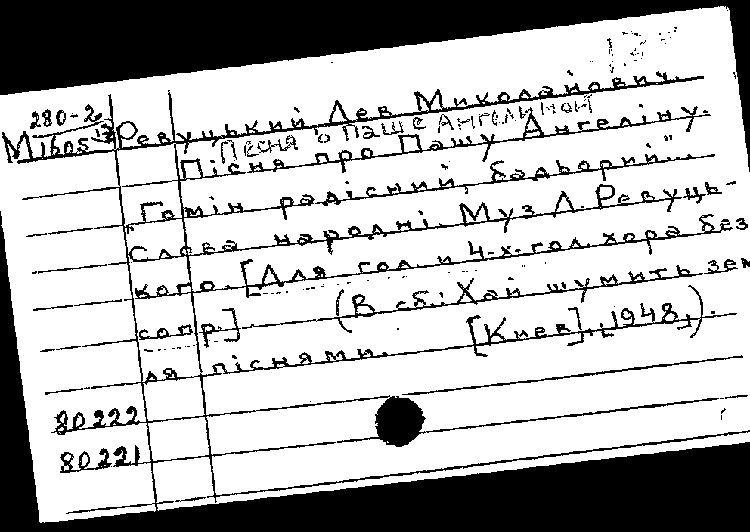 280-2
М 1605 Ревуцький, Лев Миколайович.
Песня о Паше Ангелиной
Пісня про Пашу Ангеліну.
"Гомін радісний, бадьорий"...
Слова народні. Муз Л. Ревуць-
кого. [Для гол. и 4-х гол. хора без
сопр.] (В сб.: Хай шумить зем
ля піснями. [Киев], [1948]).
80222
80221